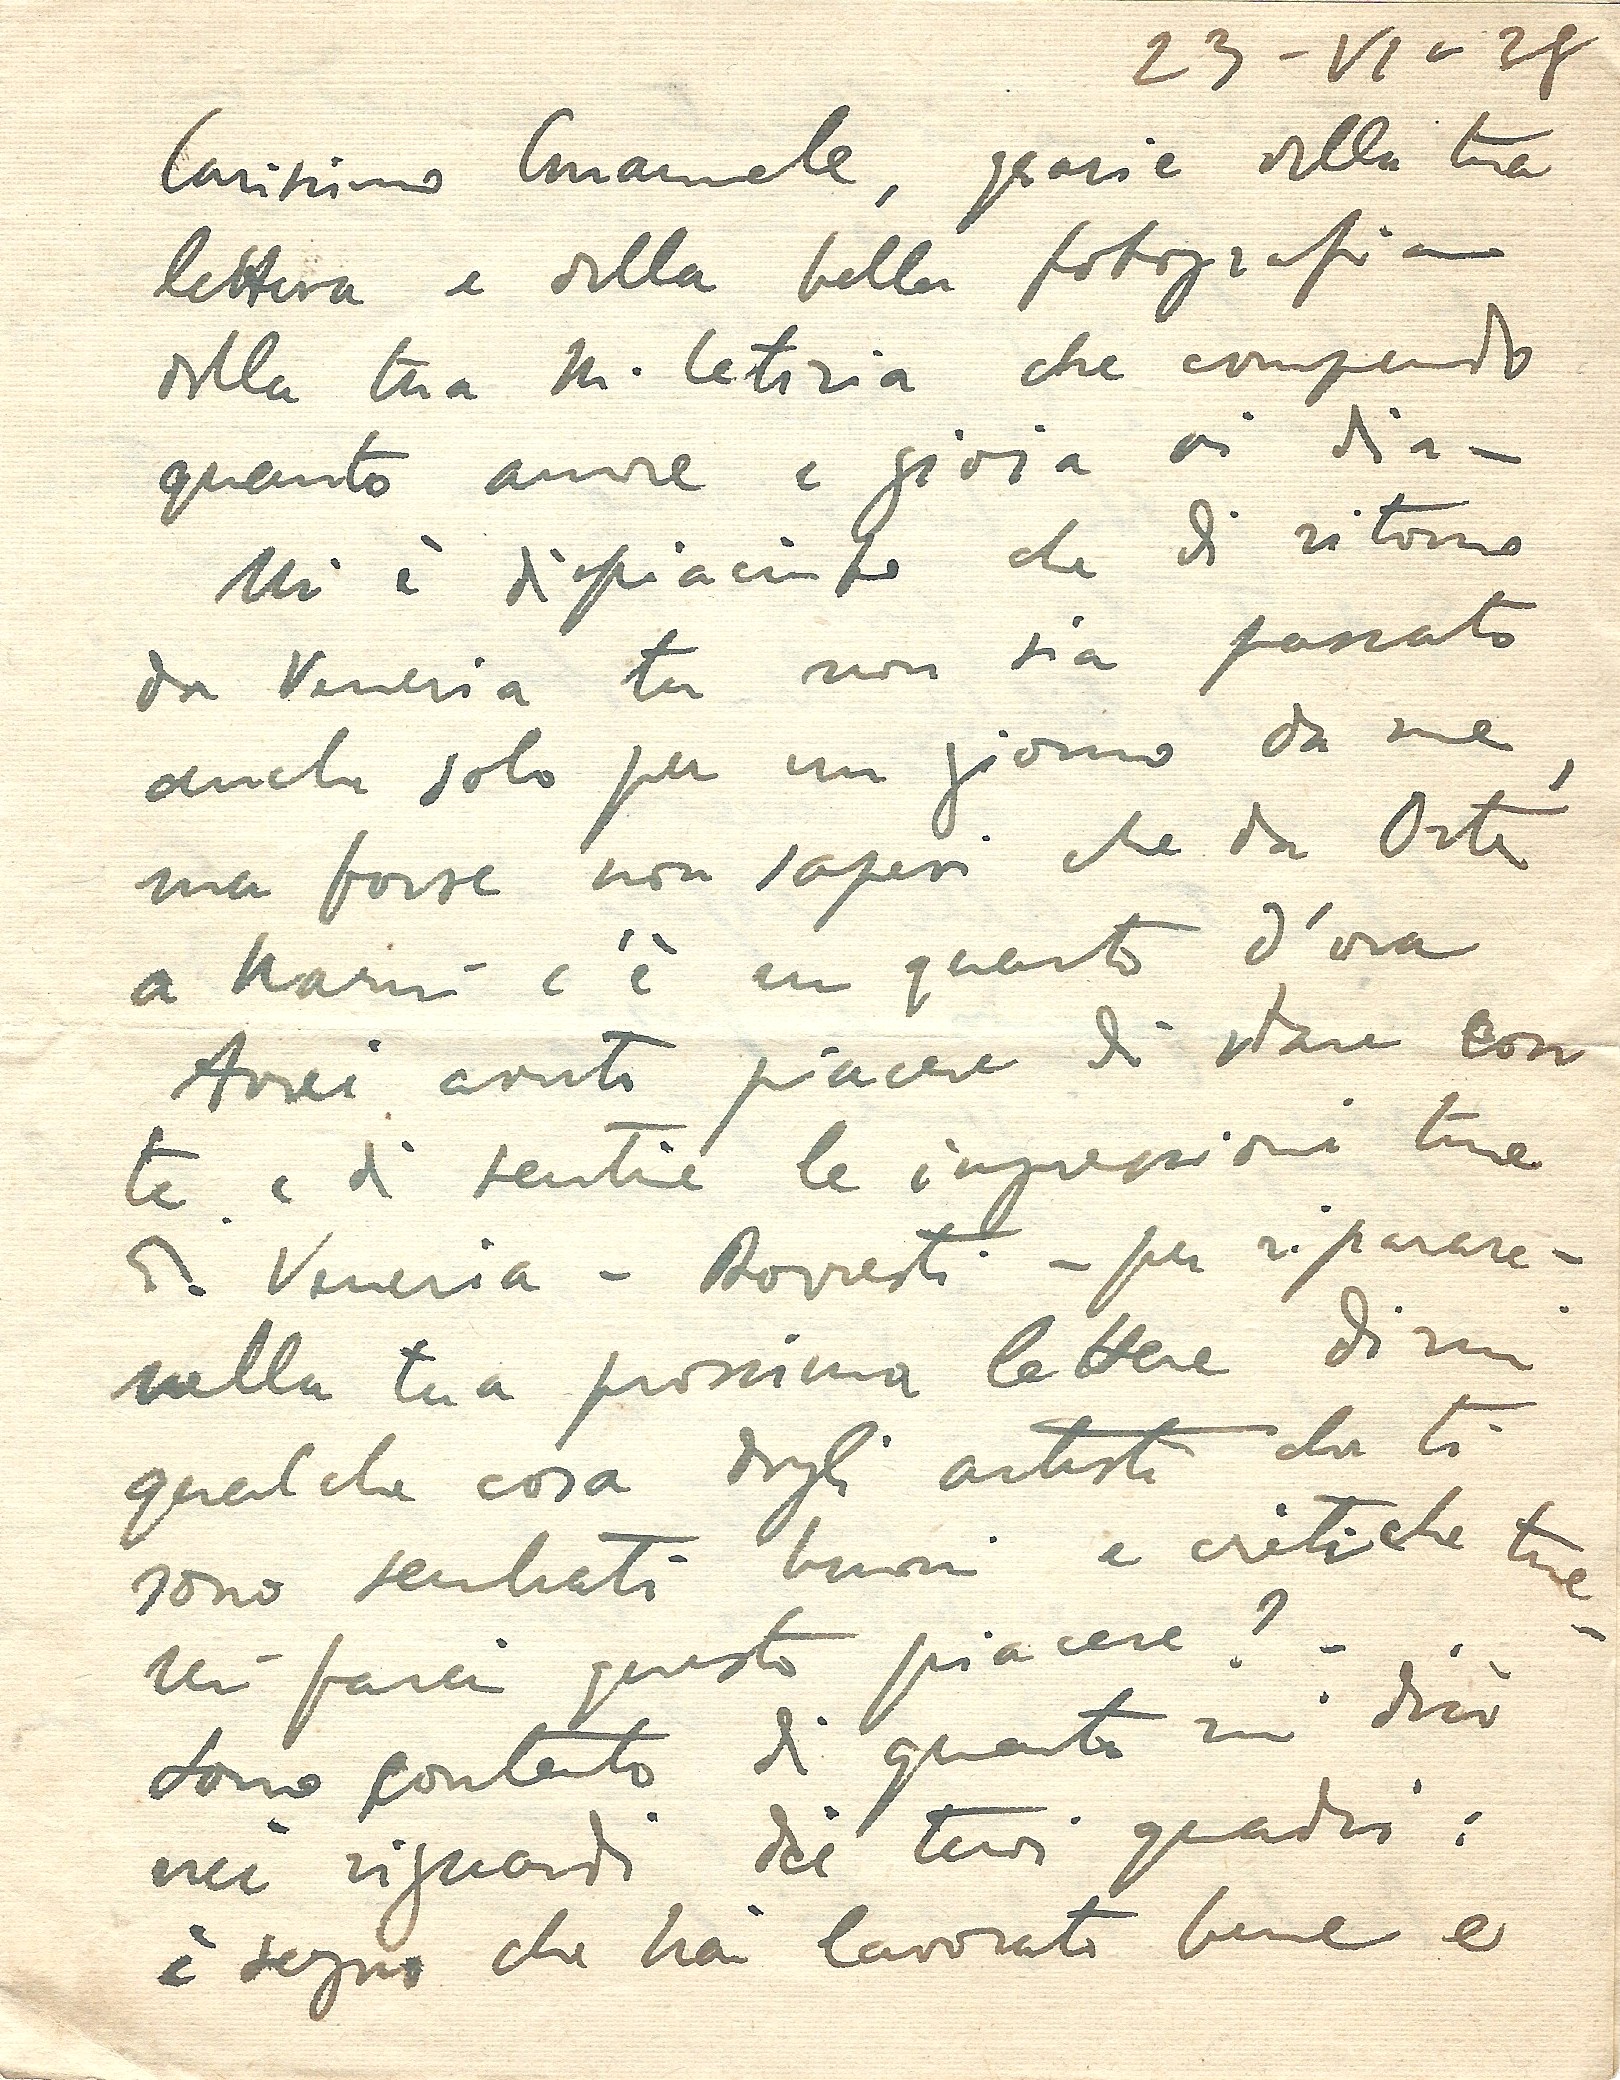 23-VI-28
Carissimo Emanuele, grazie della tua
lettera e della bella fotografia
della tua M. Letizia che comprendo
quanto amore e gioia vi dia-
Mi è dispiaciuto che di ritorno
da Venezia tu non sia passato
anche solo per un giorno da me,
ma forse non sapevi che da Orte
a Narni c'è un quarto d'ora
Avrei avuto piacere di stare con
te e di sentire le impressioni tue
di Venezia - Dovresti - per riparare -
nella tua prossima lettera dirmi
qualche cosa degli artisti che ti
sono sembrati buoni e critiche tue -
Mi farai questo piacere? -
Sono contento di quanto mi dici
nei riguardi dei tuoi quadri:
è segno che hai lavorato bene e